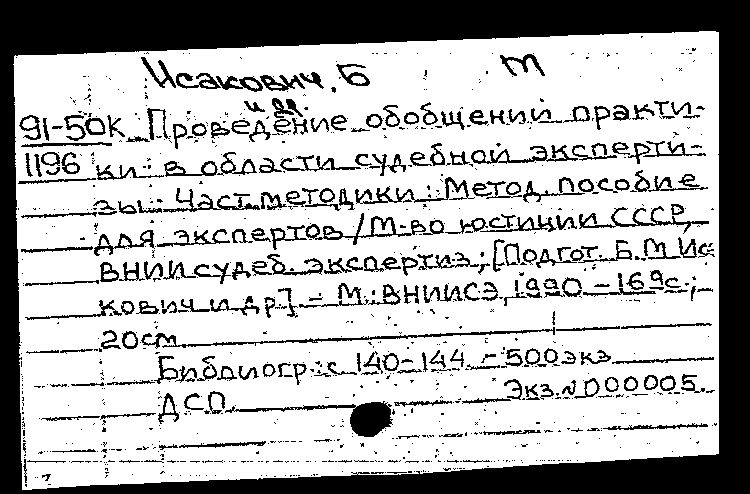 Исакович, Б М
и др.
91-50К Проведение обобщений практи-
1196 ки в области судебной эксперти-
зы: Част. методики: Метод. пособие
для экспертов / М-во юстиции СССР,
ВНИИ судеб. экспертиз; [Подгот. Б. М. Иса
кович и др] - М.: ВНИИСЭ, 1990 - 169с.;
20см
Библиогр.: с 140-144. - 500экз
ДСП. Экз. № 000005.